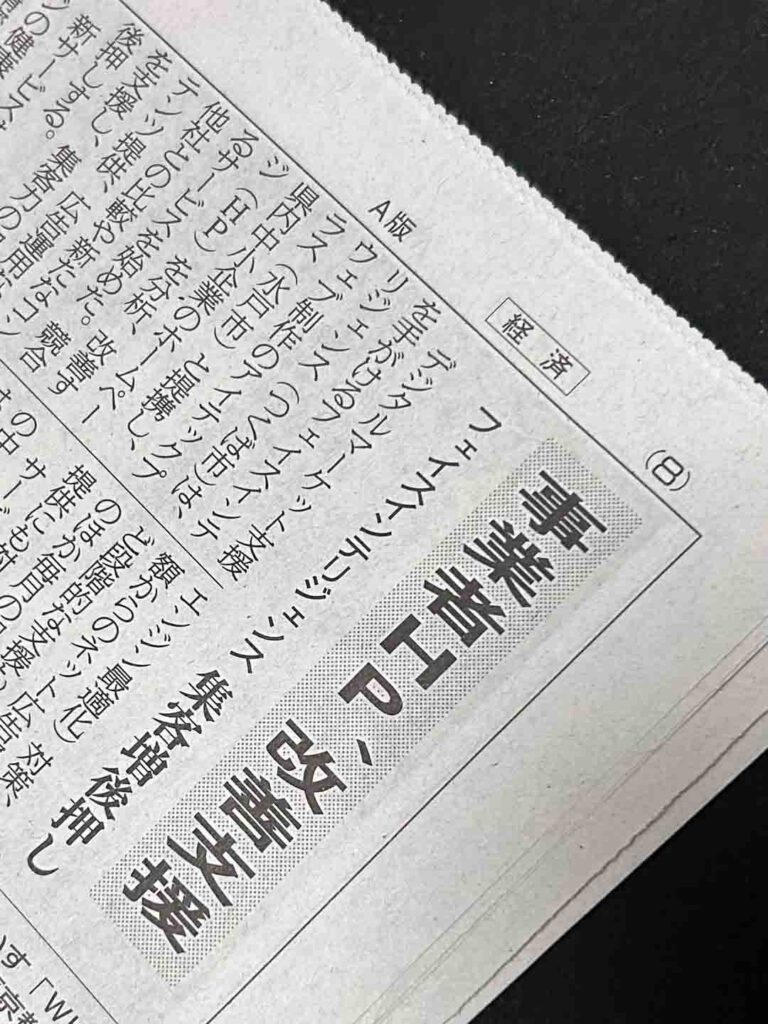 A版
経済
(8)
事業者HP、改善支援
フェイスインテリジェンス 集客増後押し
デジタルマーケット支援
を手がけるフェイスインテ
リジェンス(つくば市)は、
ウェブ制作のアイテップ
ラス(水戸市)と提携し、
県内中小企業のホームペー
ジ(HP)を分析、改善す
るサービスを始めた。競合
他社との比較や新たなコン
テンツ提供、広告運用
を支援し、集客力の
後押しする。
新サービス
エンジン最適化)対策、
額からのネット広告
ど段階的な支援
のほか毎月の
提供